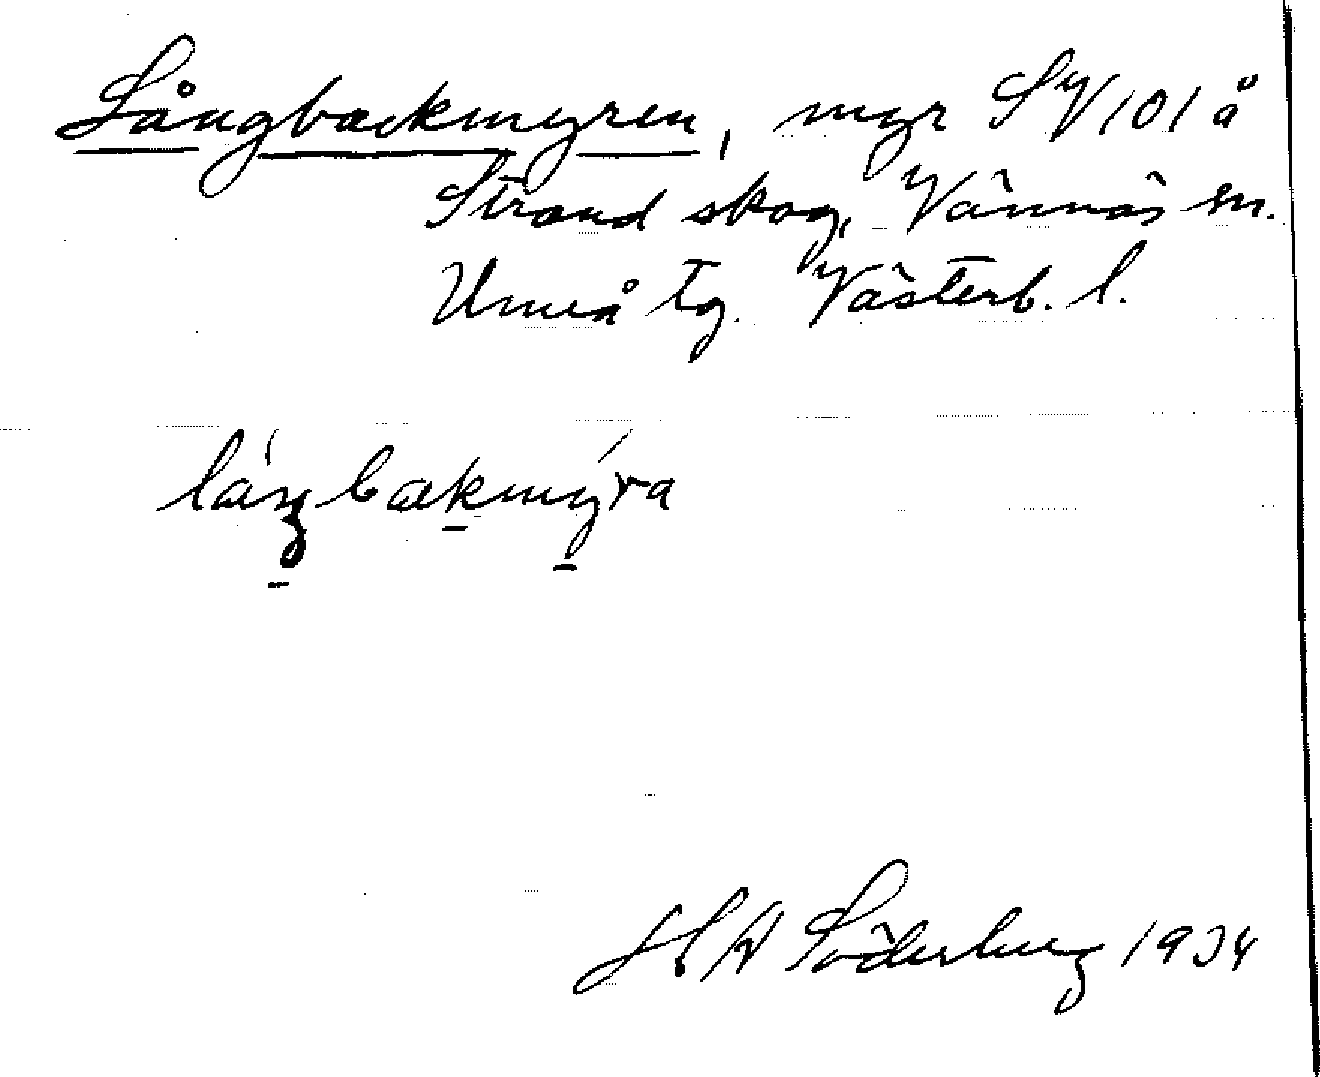 Långbackmyren, myr SV 101 å
Strand skog, Vännäs sn.
Umeå tg. Västerb. l.
H W Söderberg 1934